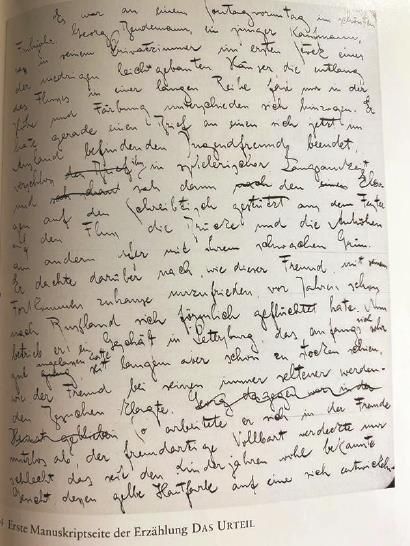 Es war an einem Sonntagvormittag im schönsten
Frühjahr. Georg Bendemann, ein junger Kaufmann,
sass in seinem Privatzimmer im ersten Stock eines
der niedrigen leicht gebauten Häuser die entlang
des Flusses in einer langen Reihe fast nur in der
Höhe und Färbung unterschieden sich hinzogen. Er
hatte gerade einen Brief an einen sich jetzt im
Ausland befindenden Jugendfreund beendet,
verschloss ihn in spielerischer Langsamkeit
und sah dann den Ellbo-
gen auf den Schreibtisch gestützt aus dem Fenster
auf den Fluss die Brücke und die Anhöhen
am andern Ufer mit ihrem schwachen Grün.
Er dachte darüber nach, wie dieser Freund, mit seinem
Fortkommen zuhause unzufrieden, vor Jahren schon
nach Russland sich förmlich geflüchtet hatte. Nun
betrieb er ein Geschäft in Petersburg das anfangs sich sehr
gut angelassen hatte seit langem aber schon zu stocken schien,
wie der Freund bei seinen immer seltener werden-
den Besuchen klagte. Georg dagegen war in der
Heimat geblieben So arbeitete er sich in der Fremde
nutzlos ab, der fremdartige Vollbart verdeckte nur
schlecht das seit den Kinderjahren wohl bekannte
Gesicht dessen gelbe Hautfarbe auf eine sich entwickeln-
4 Erste Manuskriptseite der Erzählung DAS URTEIL